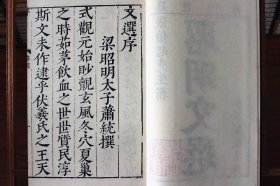 文選序
梁昭明太子蕭統撰
式觀元始眇覿玄風冬穴夏巢
之時茹毛飲血之世世質民淳
斯文未作逮乎伏羲氏之王天